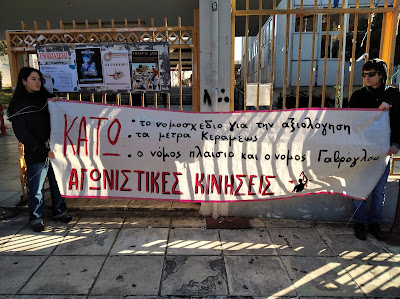 ΚΑΤΩ
• το νομοσχέδιο για την αξιολόγηση
• τα μέτρα Κεραμέως
• ο νόμος πλαίσιο και ο νομος Γαβρόγλου
ΑΓΩΝΙΣΤΙΚΕΣ ΚΙΝΗΣΕΙΣ